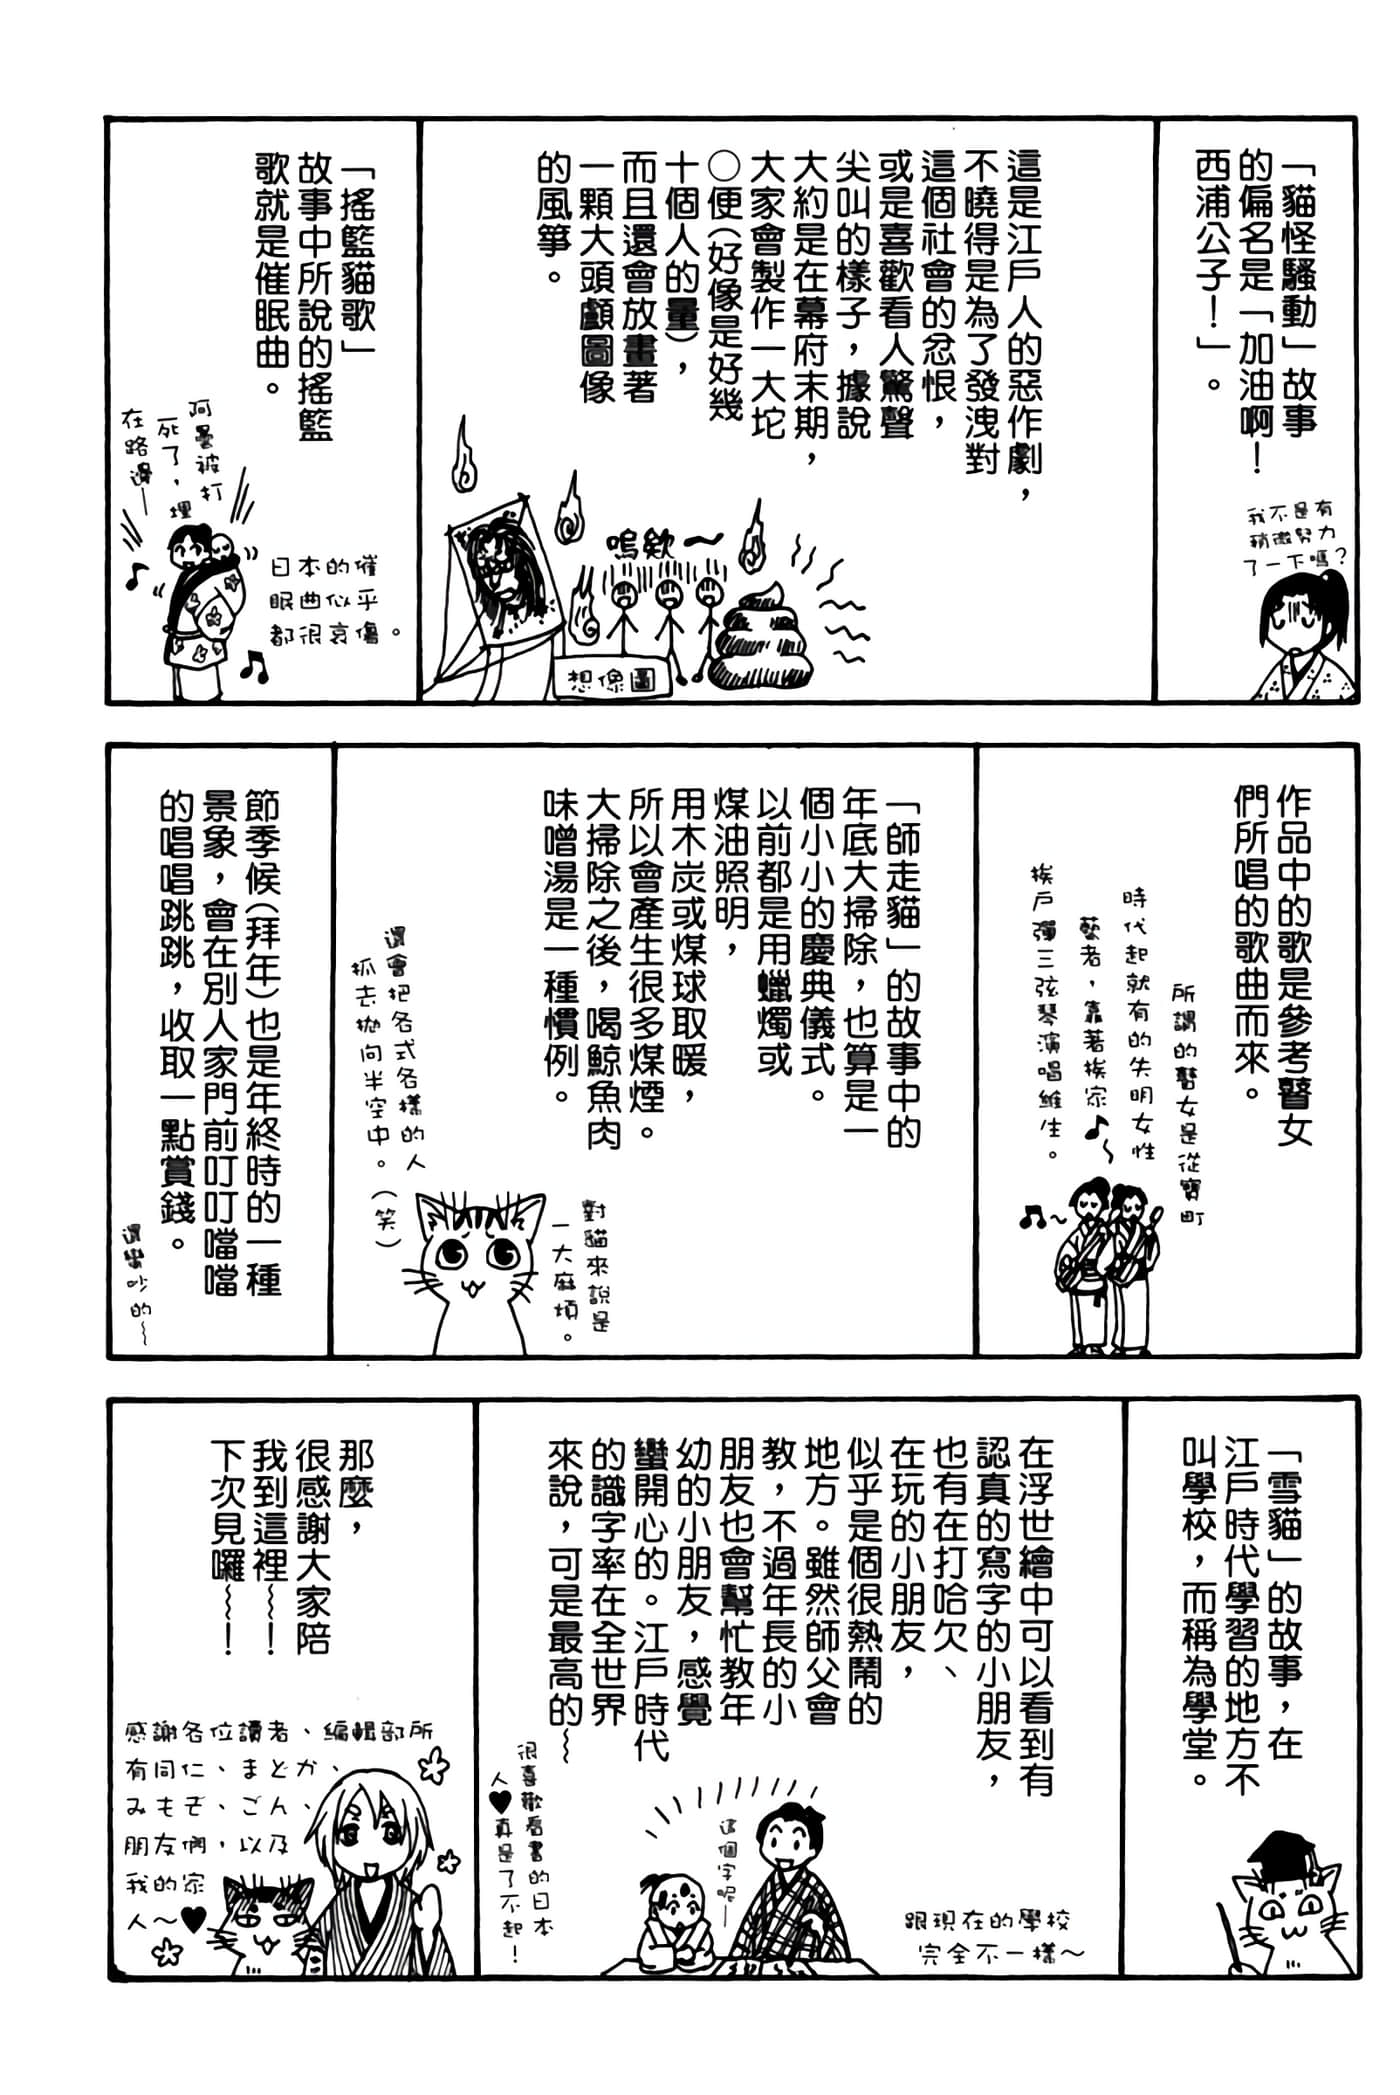 「貓怪騷動」故事
的偏名是「加油啊！
西浦公子！」。
我不是有
稍微努力
了一下嗎？
這是江戶人的惡作劇，
不曉得是為了發洩對
這個社會的忿恨，
或是喜歡看人驚聲
尖叫的樣子，據說
大約是在幕府末期，
大家會製作一大坨
○便（好像是好幾
十個人的量），
而且還會放畫著
一顆大頭顱圖像
的風箏。
嗚欸～
想像圖
「搖籃貓歌」
故事中所說的搖籃
歌就是催眠曲。
阿曼被打
死了，埋
在路邊—
日本的催
眠曲似乎
都很哀傷。
作品中的歌是參考瞽女
們所唱的歌曲而來。
所謂的瞽女是從寶町
時代起就有的失明女性
藝者，靠著挨家
挨戶彈三弦琴演唱維生。
「師走貓」的故事中的
年底大掃除，也算是一
個小小的慶典儀式。
以前都是用蠟燭或
煤油照明，
用木炭或煤球取暖，
所以會產生很多煤煙。
大掃除之後，喝鯨魚肉
味噌湯是一種慣例。
對貓來說是
一大麻煩。
還會把各式各樣的人
抓去拋向半空中。（笑）
節季候（拜年）也是年終時的一種
景象，會在別人家門前叮叮噹噹
的唱唱跳跳，收取一點賞錢。
還蠻吵的～
「雪貓」的故事，在
江戶時代學習的地方不
叫學校，而稱為學堂。
在浮世繪中可以看到有
認真的寫字的小朋友，
也有在打哈欠、
在玩的小朋友，
似乎是個很熱鬧的
地方。雖然師父會
教，不過年長的小
朋友也會幫忙教年
幼的小朋友，感覺
蠻開心的。江戶時代
的識字率在全世界
來說，可是最高的～
這個字呢—
跟現在的學校
完全不一樣～
很喜歡看書的日本
人♥真是了不起！
那麼，
很感謝大家陪
我到這裡～！
下次見囉～！
感謝各位讀者、編輯部所
有同仁、まどか、
みもぞ、ごん、
朋友們，以及
我的家
人～♥